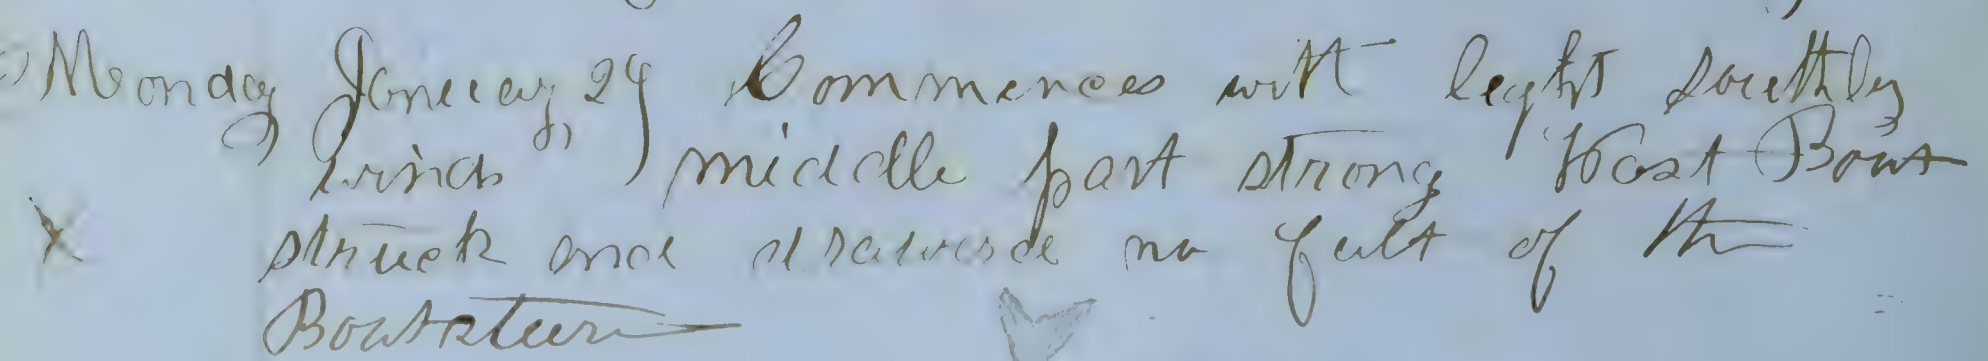 Monday January 29 Commences with leght southly
winds middle part strong Wast Boat
struck and drawed no falt of the
Boatsteer